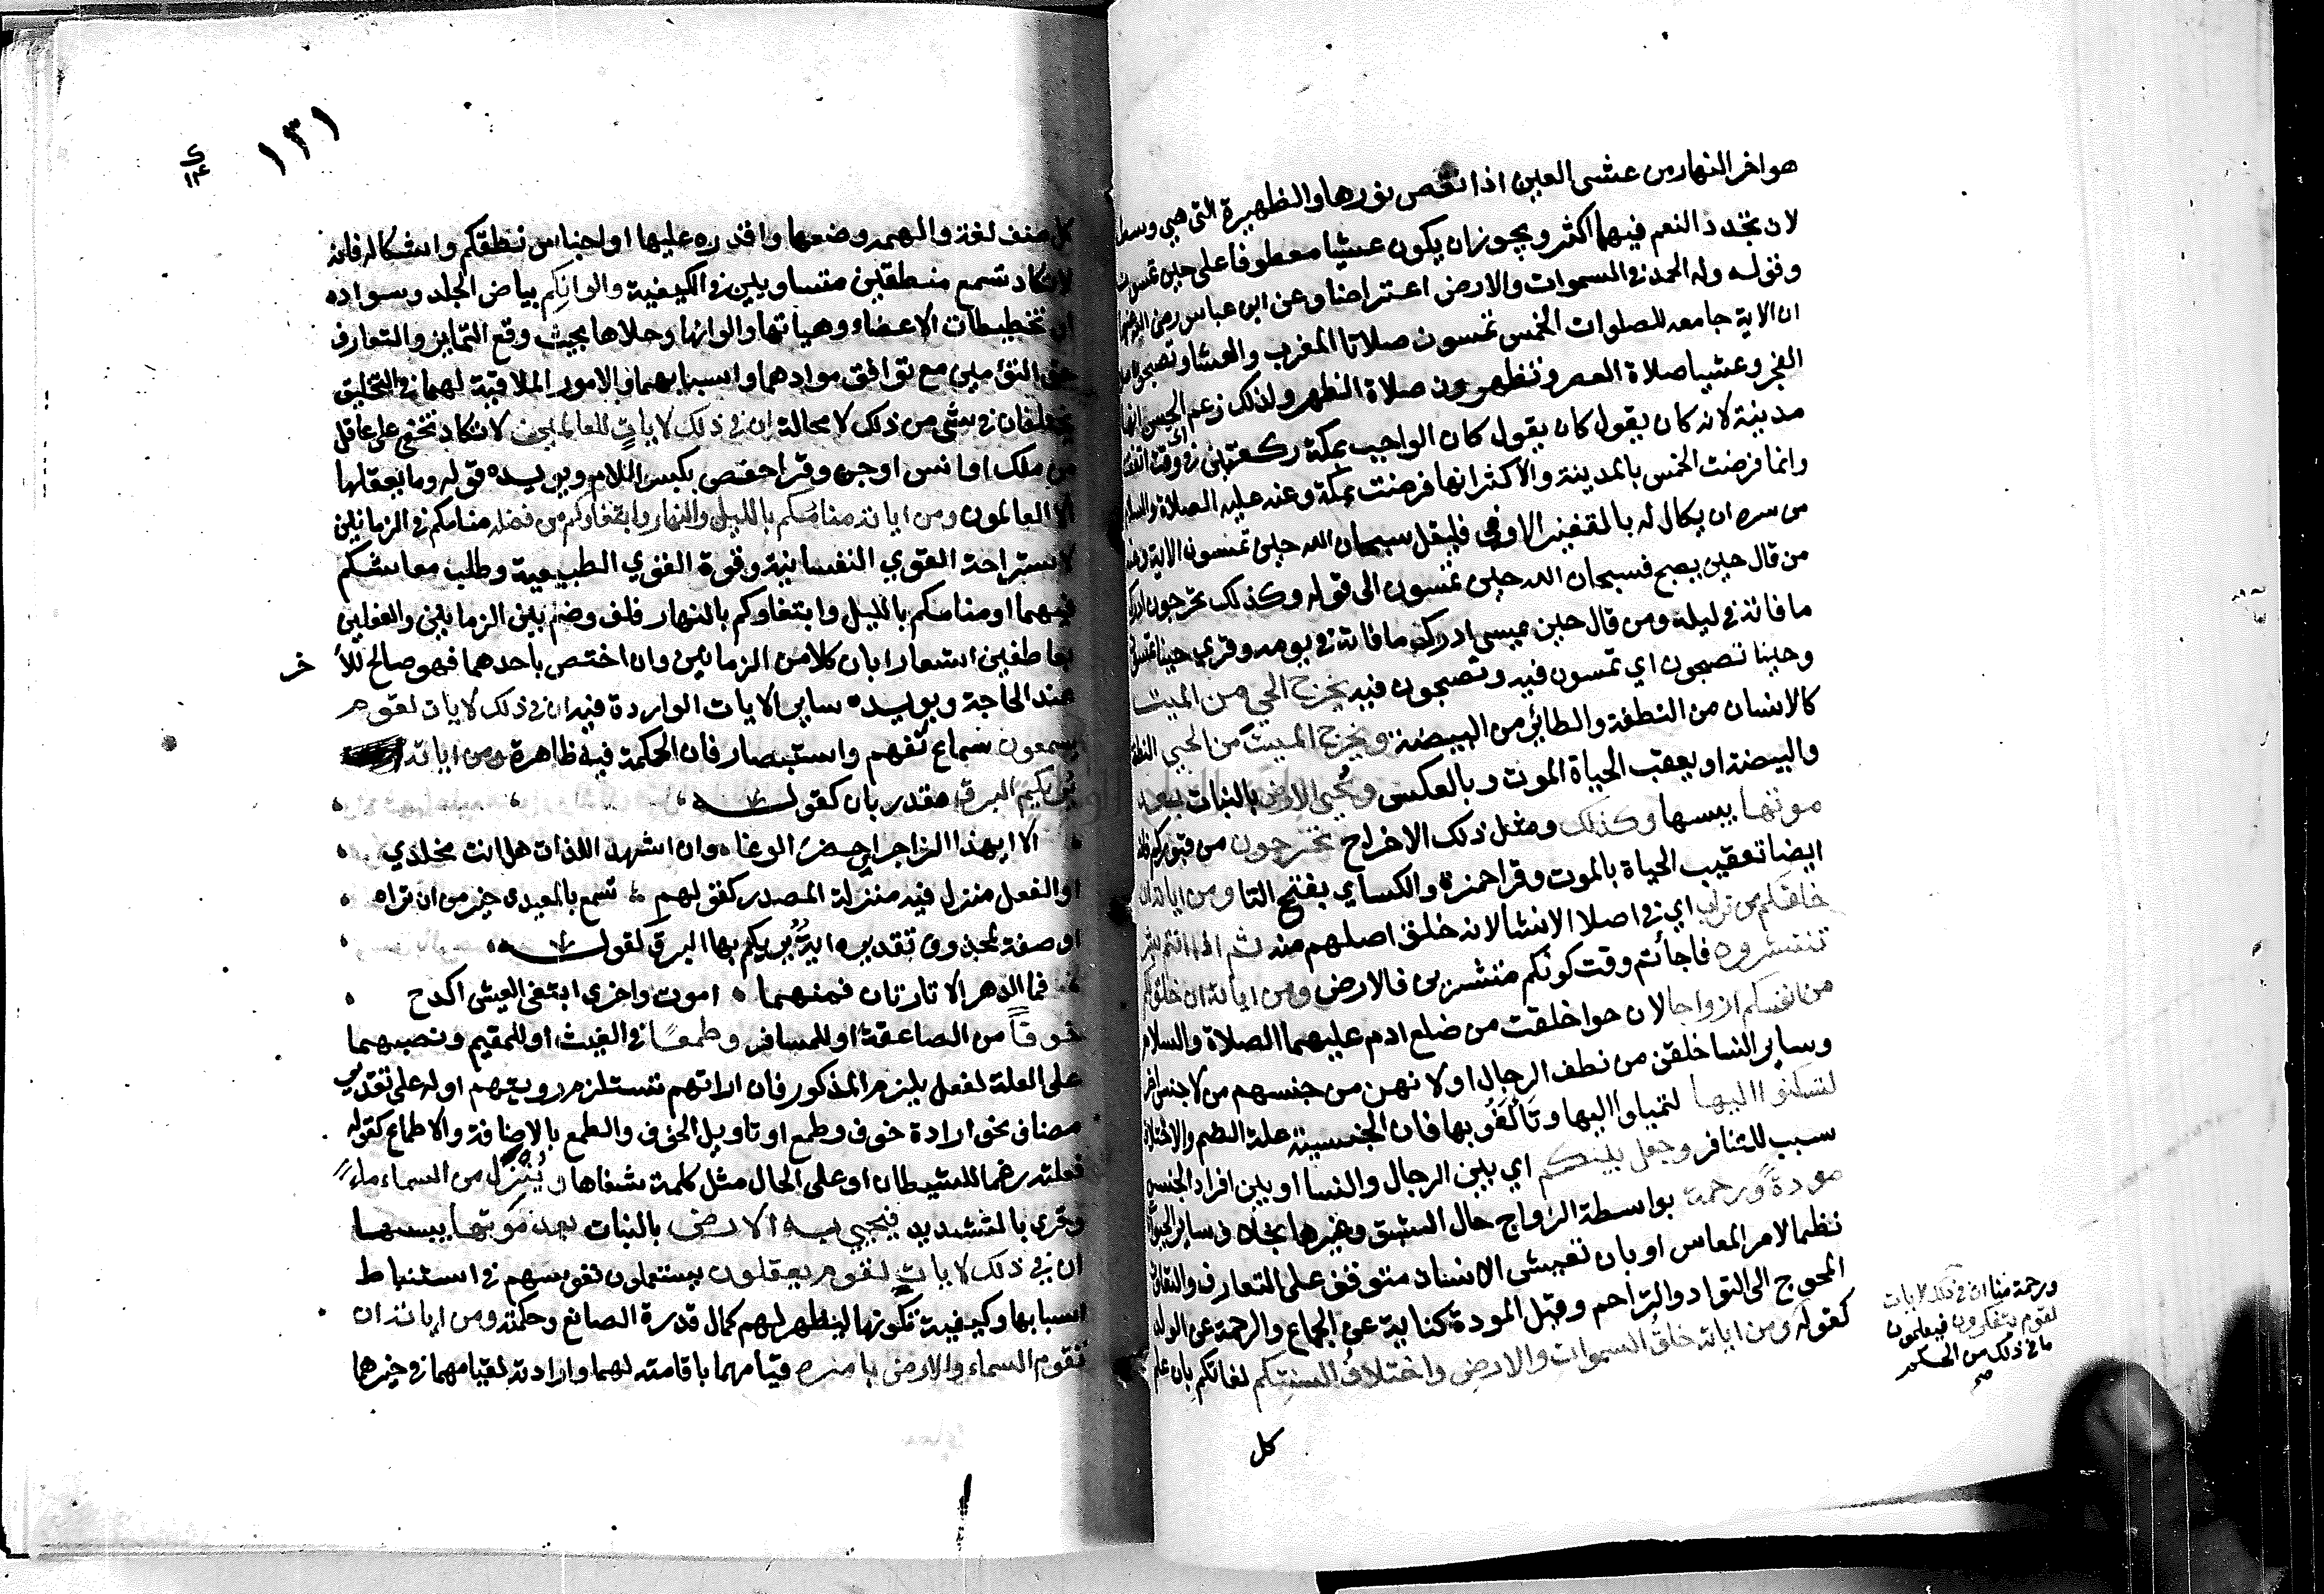 هو اخر النهار من عشى العين اذا نقص نورها والظهيرة التي هي وسط
لان تجدد النعم فيهما اكثر ويجوز ان يكون عشيا معطوفا على حين تمسون
وقوله وله الحمد في السموات والارض اعتراضا وعن ابن عباس رضي الله عنهما
ان الاية جامعه للصلوات الخمس تمسون صلاتا المغرب والعشا وتصبحون
الفجر وعشيا صلاة العصر وتظهرون صلاة الظهر ولذلك زعم الحسن انها
مدينة لانه كان يقول كان يقول كان الواجب بمكة ركعتين في اي وقت اتفقت
وانما فرضت الخمس بالمدينة والاكثر انها فرضت بمكة وعنه عليه الصلاة والسلام
من سره ان يكال له بالقفيز الاوفى فليقل سبحان الله حين تمسون الاية وعنه
من قال حين يصبح فسبحان الله حين تمسون الى قوله وكذلك تخرجون ادرك
ما فاته في ليلة ومن قال حين يمسي ادرك ما فاته في يومه وقري حينا تمسون
وحينا تصبحون اي تمسون فيه وتصبحون فيه يخرج الحي من الميت
كالانسان من النطفة والطائر من البيضة ويخرج الميت من الحي النطفة
والبيضة او يعقب الحياة الموت وبالعكس ويحيي الارض بالنبات بعد
موتها يبسها وكذلك ومثل ذلك الاخراج تخرجون من قبوركم فانه
ايضا تعقيب الحياة بالموت وقرا حمزة والكساي بفتح التا ومن اياته ان
خلقكم من تراب اي في اصلا الانشا لانه خلق اصلهم منه ثم اذا انتم بشر
تنتشرون فاجأتم وقت كونكم منتشرين فالارض ومن اياته ان خلق لكم
من انفسكم ازواجا لان حوا خلقت من ضلع ادم عليهما الصلاة والسلام
وساير النسا خلقن من نطف الرجال او لانهن من جنسهم من لا جنس اخر
لتسكنوا اليها لتميلوا اليها وتألفو بها فان الجنسية علة الضم والاختلاف
سبب للتنافر وجعل بينكم اي بين الرجال والنسا او بين افراد الجنس
مودة ورحمة بواسطة الزواج حال الشبق وغيرها بخلاف ساير الحيوانات
نظما لامر المعاس او بان تعيشى الانسان متوقف على التعارف والتعاون
المحوج الى التواد والتراحم وقبل المودة كناية عن الجماع والرحمة عن الولد
كقوله ومن اياته خلق السموات والارض واختلاف السنتكم لغاتكم بان علم
كل
ورحمة منا ان في ذلك لايات
لقوم يتفكرون فيعلمون
ما في ذلك من الحكم
صح
١٣١
كل صنف لغة والهمه وضعها واقدره عليها او اجناس نطقكم واشكاله فانه
لا تكاد تسمع منطقين متساويين في الكيفية والوانكم بياض الجلد وسواده
او تخطيطات الاعضاء وهياتها والوانها وحلاها بحيث وقع التمايز والتعارف
حتى التؤمين مع توافق موادهما واسبابهما والامور الملاقية لهما في التخليق
يختلفان في شى من ذلك لا محالة ان في ذلك لايات للعالمين لا تكاد تخفى على عاقل
من ملك او انس او جن وقرا حفص بكسر اللام ويويده قوله وما يعقلها
الا العالمون ومن اياته منامكم بالليل والنهار وابتغاوكم من فضله منامكم في الزمانين
لاستراحة القوي النفسانية وقوة القوي الطبيعية وطلب معاشكم
فيهما او منامكم بالليل وابتغاوكم بالنهار فلف وضم بين الزمانين والفعلين
بعاطفين اشعارا بان كلا من الزمانين وان اختص باحدهما فهو صالح للأ خر
عند الحاجة ويويده ساير الايات الواردة فيه ان في ذلك لايات لقوم
يسمعون سماع تفهم واستبصار فان الحكمة فيه ظاهرة ومن اياته
يريكم البرق مقدر بان كقوله
الا ايهذا الزاجراي احضر الوغا وان اشهد اللذات هل انت مخلدي
او الفعل منزل فيه منزلة المصدر كقولهم تسمع بالمعيدى خير من ان تراه
او صفة لمحذوف تقديره اية يريكم بها البرق لقوله
فما الدهر الا تارتان فمنهما اموت واخرى ابتغى العيش اكدح
خوفا من الصاعقة او للمسافر وطمعا في الغيث او للمقيم ونصبهما
على العلة لفعل يلزم المذكور فان اراتهم تستلزم رويتهم او له على تقدير
مضاف نحو ارادة خوف وطمع او تاويل الخوف والطمع بالاضافة والاطماع كقوله
فعلته رغما للشيطان او على الحال مثل كلمته شفاها وينزل من السماء ماء
وقري بالتشديد فيحيي به الارض بالنبات بعد موتها يبسها
ان في ذلك لايات لقوم يعقلون يستعملون نفوسهم في استنباط
اسبابها وكيفية تكونها ليظهر لهم كمال قدرة الصانع وحكمته ومن اياته ان
تقوم السماء والارض بامره قيامهما باقامته لهما وارادته لقيامهما في خيرهما